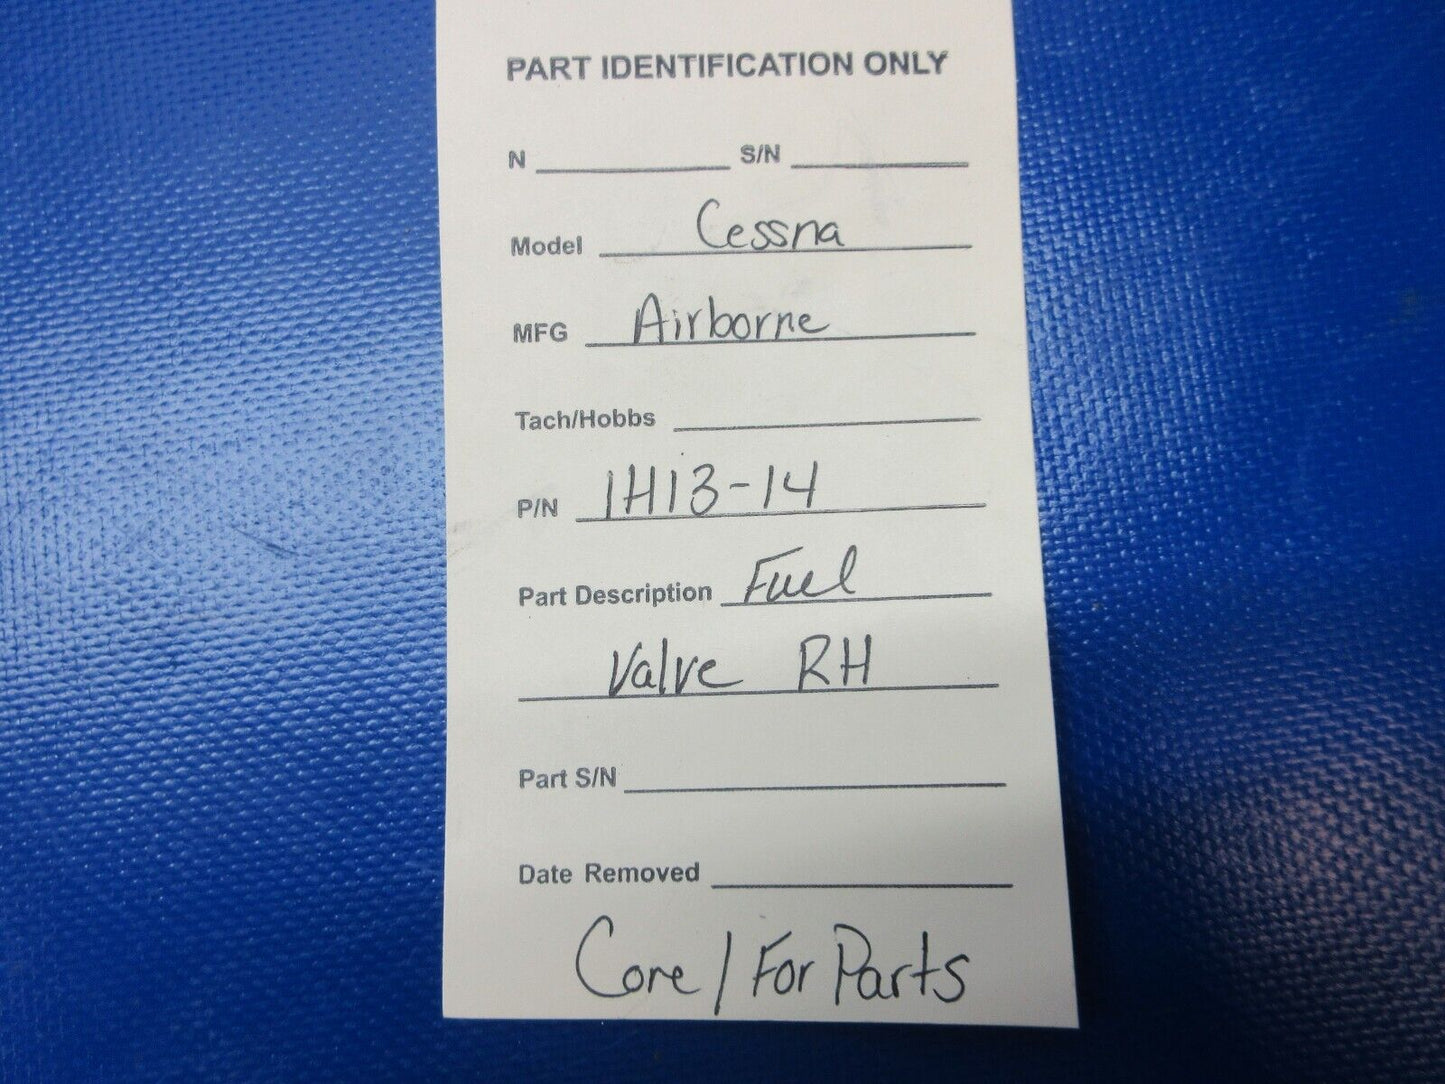 PART IDENTIFICATION ONLY
N S/N
Model Cessna
MFG Airborne
Tach/Hobbs
P/N 1H13-14
Part Description Fuel
Valve RH
Part S/N
Date Removed
Core / For Parts